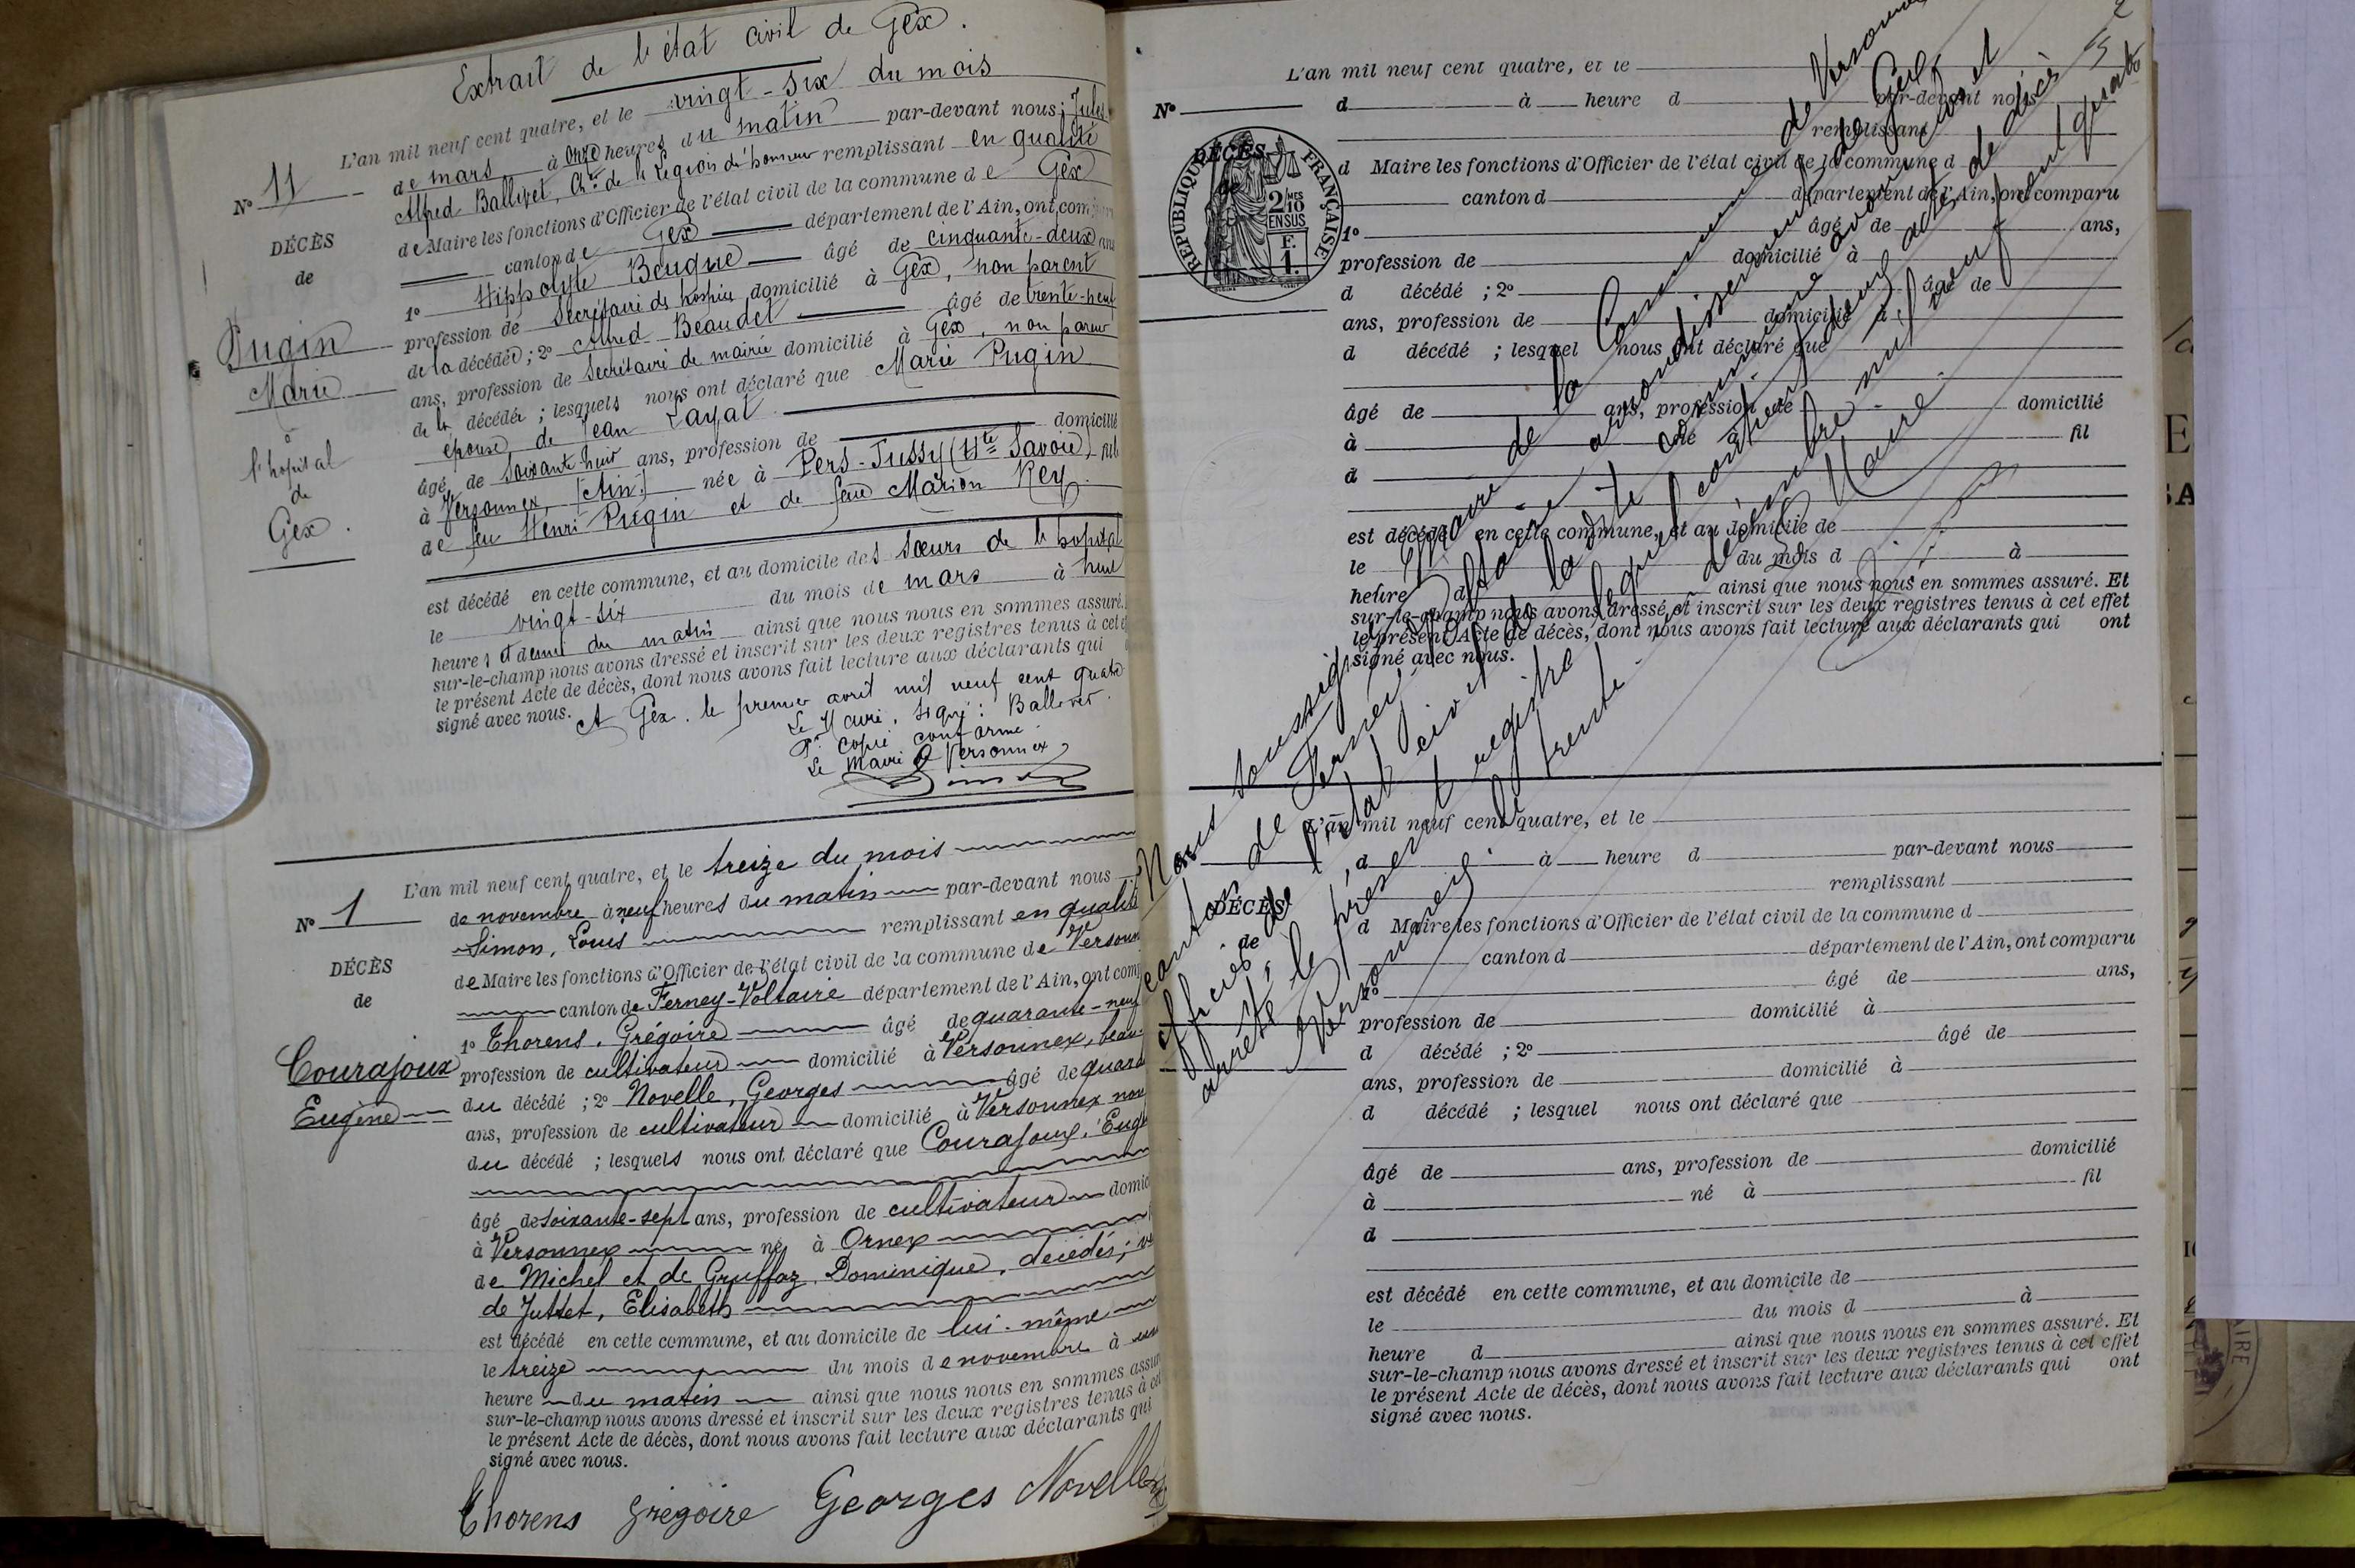 Extrait de l'état civil de Gex.
L'an mil neuf cent quatre, et le vingt-six du mois
N° 11
de mars à onze heures du matin par-devant nous, Jules
Alfred Ballivet, Ch.er de la Légion d'honneur remplissant en qualité
de Maire les fonctions d'Officier de l'état civil de la commune de Gex
canton de Gex département de l'Ain, ont
1° Hippolyte Bouque âgé de cinquante-deux ans
profession de Secrétaire de hospice domicilié à Gex, non parent
de la décédée; 2° Alfred Beaudet âgé de trente-neuf
ans, profession de Secrétaire de mairie domicilié à Gex, non parent
de la décédée; lesquels nous ont déclaré que Marie Pugin
épouse de Jean Layat
âgé de soixante-huit ans, profession de domicilié
à Versonnex, (Ain) née à Pers-Jussy (Hte Savoie) fille
de feu Henri Pugin et de feue Marion Rey.
est décédé en cette commune, et au domicile des Sœurs de l'hôpital
le vingt-six du mois de mars à huit
heures et demie du matin ainsi que nous nous en sommes assuré.
sur-le-champ nous avons dressé et inscrit sur les deux registres tenus à cet
le présent Acte de décès, dont nous avons fait lecture aux déclarants qui
signé avec nous. A Gex, le premier avril mil neuf cent quatre
Le Maire, signé: Ballivet.
Pr copie conforme
Le Maire de Versonnex
Simon
DÉCÈS
de
Pugin
Marie
à
l'hôpital
de
Gex.
L'an mil neuf cent quatre, et le treize du mois
N° 1
de novembre à neuf heures du matin par-devant nous
Simon, Louis remplissant en qualité
de Maire les fonctions d'Officier de l'état civil de la commune de Versonn
canton de Ferney-Voltaire département de l'Ain, ont comp
1° Thorens, Grégoire âgé de quarante-neuf
profession de cultivateur domicilié à Versonnex, beau-
du décédé; 2° Novelle, Georges âgé de quara
ans, profession de cultivateur domicilié à Versonnex non
du décédé; lesquels nous ont déclaré que Courajoux, Eug
âgé de soixante-sept ans, profession de cultivateur domic
à Versonnex né à Ornex
de Michel et de Gruffaz, Dominique, décédés;
de Juttet, Elisabeth
est décédé en cette commune, et au domicile de lui-même
le treize du mois de novembre à une
heure du matin ainsi que nous nous en sommes assur
sur-le-champ nous avons dressé et inscrit sur les deux registres tenus à cet
le présent Acte de décès, dont nous avons fait lecture aux déclarants qui
signé avec nous.
Thorens Grégoire Georges Novelle
DÉCÈS
de
Courajoux
Eugène
L'an mil neuf cent quatre, et le
N°
d à heure d par-devant nous
remplissant
d Maire les fonctions d'Officier de l'état civil de la commune d
canton d département de l'Ain, ont comparu
1° âgé de ans,
profession de domicilié à
d décédé ; 2° âgé de
ans, profession de domicilié à
d décédé ; lesquel nous ont déclaré que
âgé de ans, profession de domicilié
à né à fil
d
est décédé en cette commune, et au domicile de
le du mois d à
heure d ainsi que nous nous en sommes assuré. Et
sur-le-champ nous avons dressé et inscrit sur les deux registres tenus à cet effet
le présent Acte de décès, dont nous avons fait lecture aux déclarants qui ont
signé avec nous.
DÉCÈS
de
RÉPUBLIQUE FRANÇAISE
2/10MES
EN SUS
F.
1.
Nous soussigné Maire de la Commune de Versonnex
canton de Ferney-Voltaire arrondissement de Gex,
officier de l'état civil de la dite commune avons clos et
arrêté le présent registre lequel contient deux actes de décès
Versonnex, le trente-un décembre mil neuf cent quatre
Le Maire.
L'an mil neuf cent quatre, et le
d à heure d par-devant nous
remplissant
d Maire les fonctions d'Officier de l'état civil de la commune d
canton d département de l'Ain, ont comparu
1° âgé de ans,
profession de domicilié à
d décédé ; 2° âgé de
ans, profession de domicilié à
d décédé ; lesquel nous ont déclaré que
âgé de ans, profession de domicilié
à né à fil
d
est décédé en cette commune, et au domicile de
le du mois d à
heure d ainsi que nous nous en sommes assuré. Et
sur-le-champ nous avons dressé et inscrit sur les deux registres tenus à cet effet
le présent Acte de décès, dont nous avons fait lecture aux déclarants qui ont
signé avec nous.
DÉCÈS
de